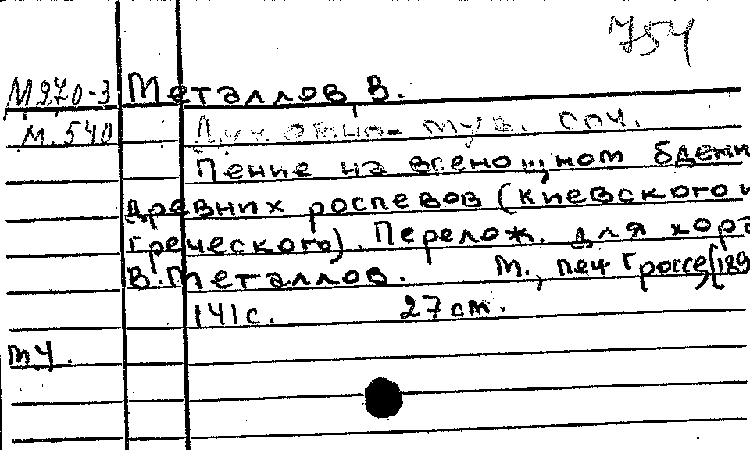 754
М970-3 Металлов, В.
м.540 Духовно-муз. соч.
Пение на всенощном бдени
древних роспевов (киевского и
греческого). Перелож. для хора
В. Металлов. М., печ. Гроссе, [189
141с. 27см.
тч.